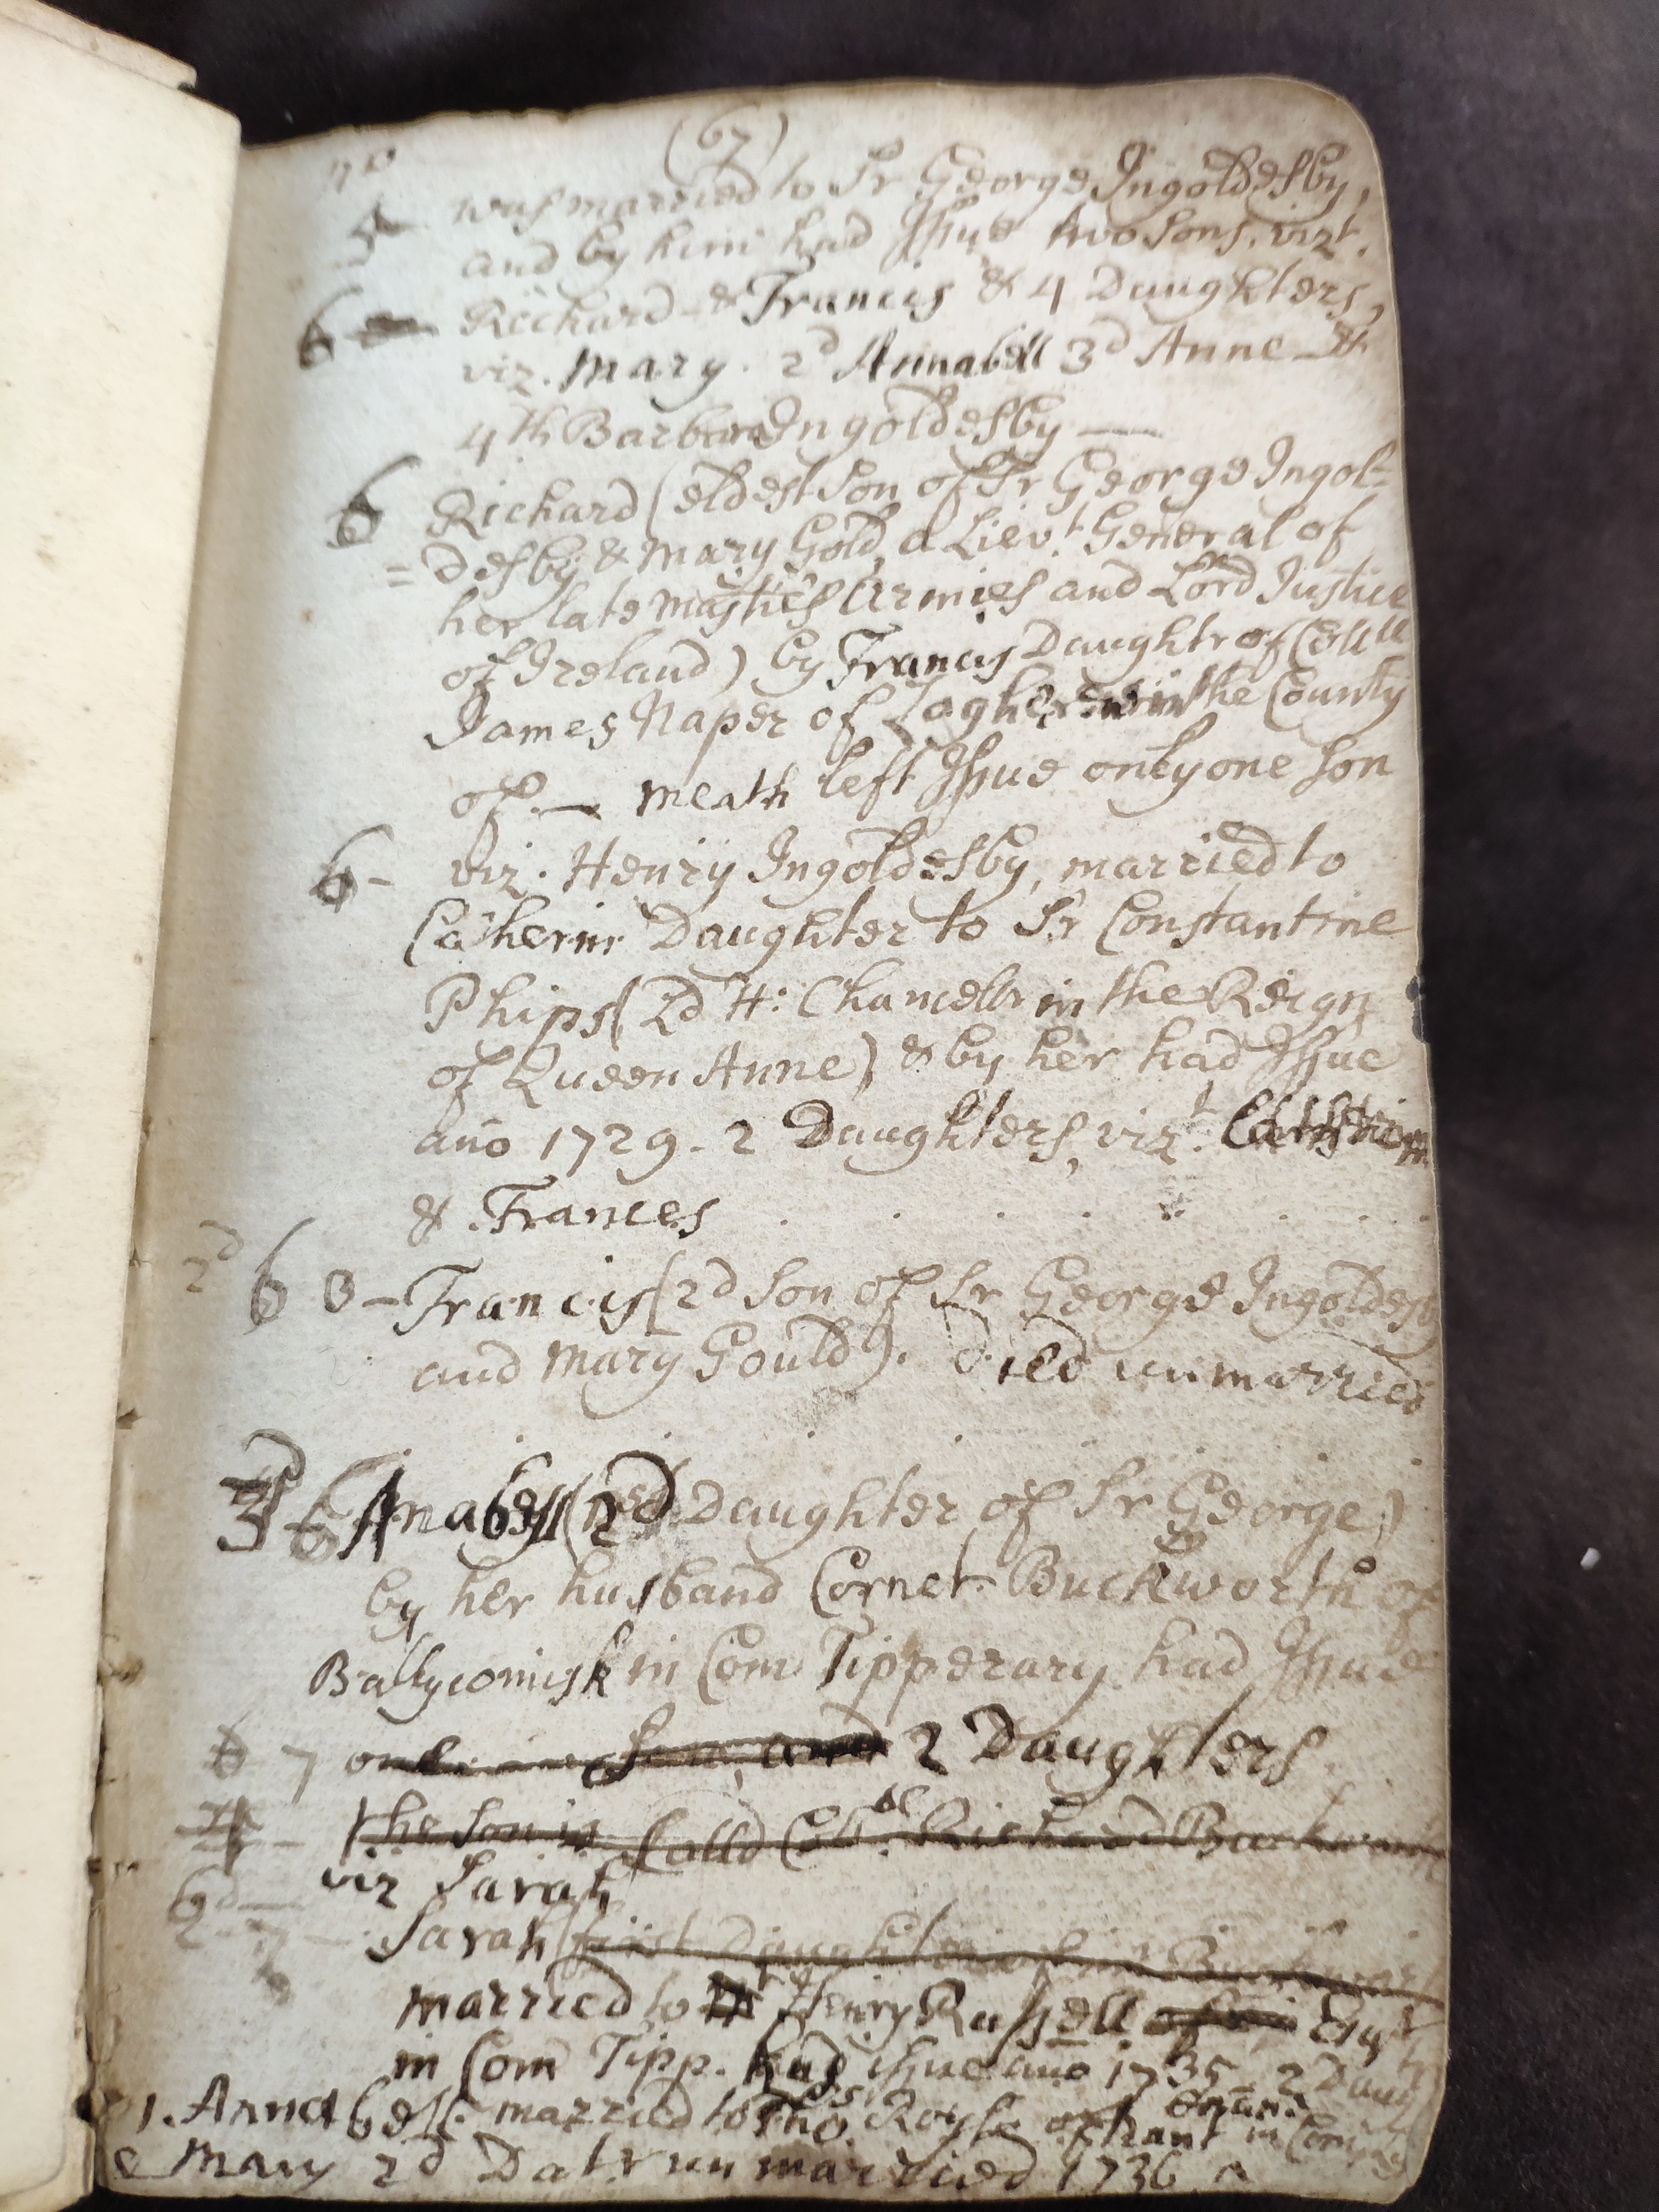 (67)
5
was married to Sr George Ingoldesby,
and by him had Issue two sons. vizt.
6 Richard & Francis & 4 Daughters,
viz. Mary. 2d Annabell 3d Anne &
4th Barbara Ingoldesby —
6 Richard (eldest son of Sr George Ingol=
=desby & Mary Gold, a Lievt. General of
her late Majties Armies and Lord Justice
of Ireland) by Francis Daughtr of Colll
James Naper of in the County
of — Meath left Issue only one son
6- viz. Henry Ingoldesby, married to
Catherin Daughter to Sr Constantine
Phips (Ld H: Chancellr in the Reign
of Queen Anne) & by her had Issue
ano 1729. 2 Daughters, vizt.
& Frances
2d 6 3 - Francis (2d son of Sr George Ingoldesby
and Mary Gould). died unmarried
3d 6 Anabell (2d Daughter of Sr George)
by her husband Cornet Buckworth of
Ballycomisk in Com Tipperary had Issue
6 7 and 2 Daughters.
the son is Calld Coll. Richard Buckworth
viz Sarah
7 - Sarah (first Daughter of Buckworth
married to Henry Russell Esqr
in Com Tipp. had issue ano 1735 2 Daug
1. Annabell married to Tho Royse of in Com
Mary 2d Datr unmarried 1736